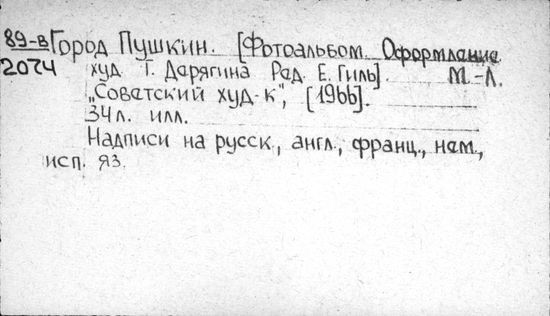 89-в Город Пушкин. [Фотоальбом. Оформление
2074 худ. Т. Дерягина Ред. Е. Гиль]. М.-Л.
„Советский худ-к", [1966].
34 л. илл.
Надписи на русск., англ., франц., нем.,
исп. яз.